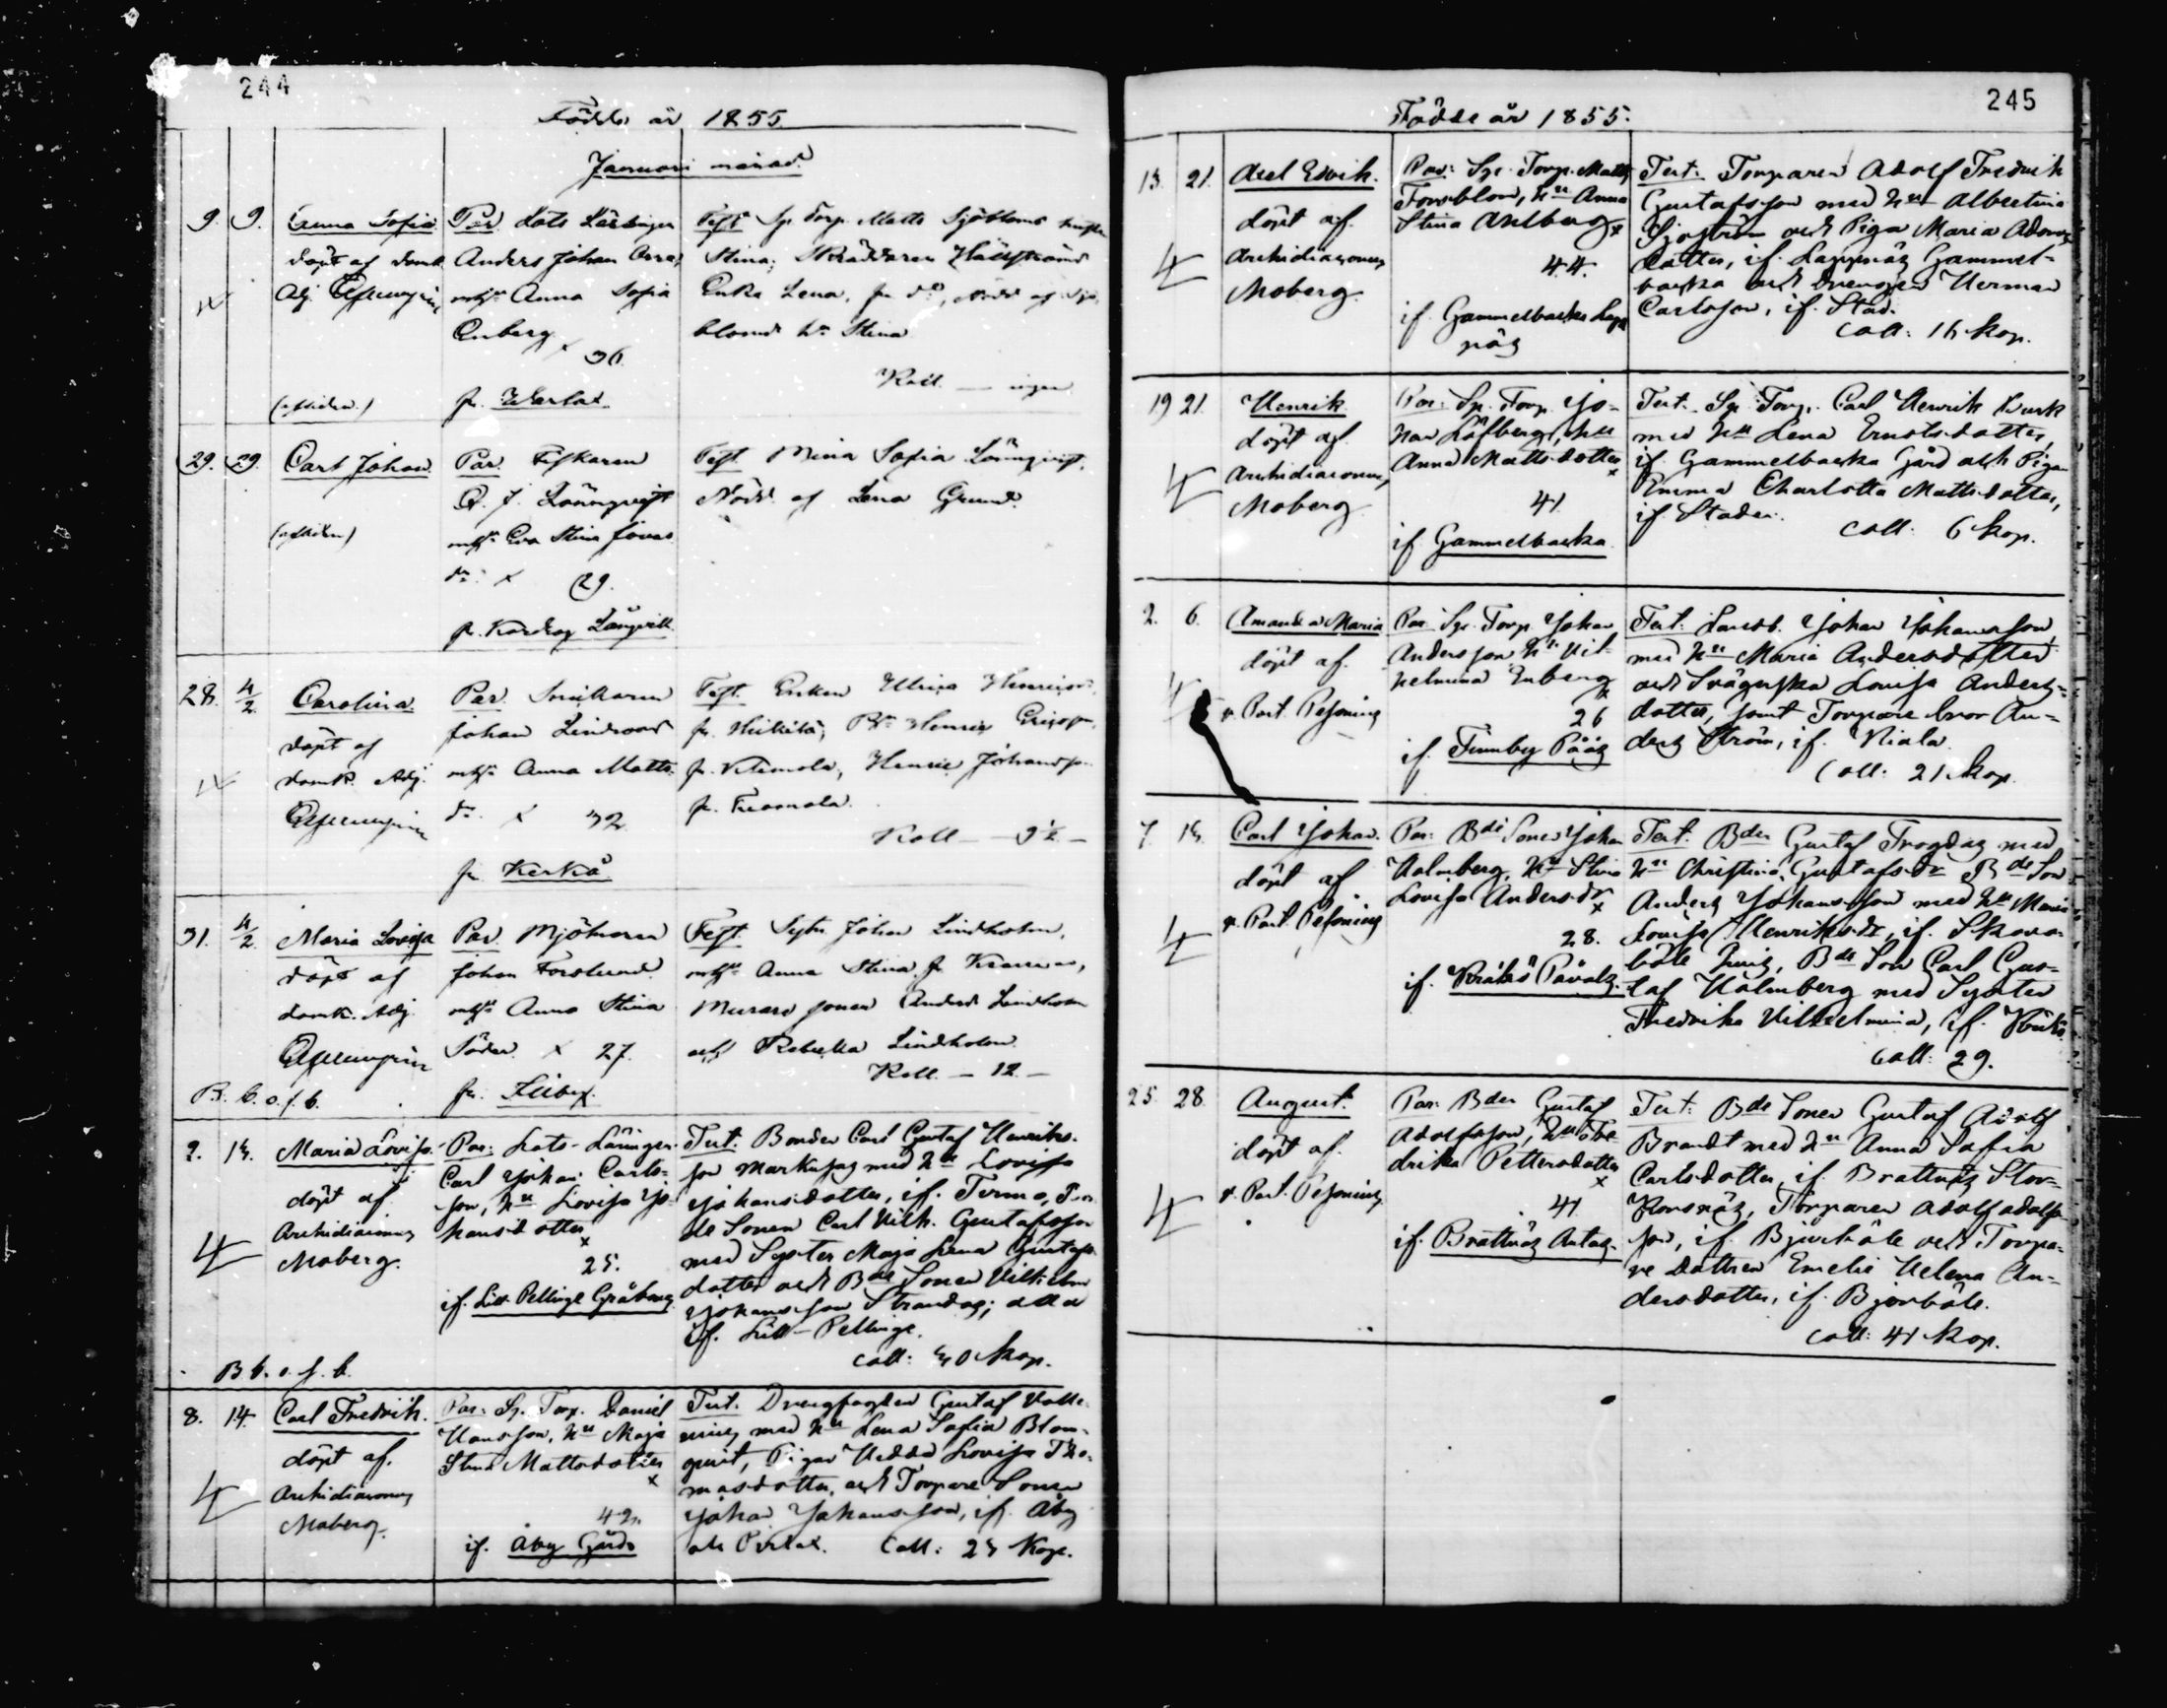 244
Födde år 1855.
Januari månad.
9. 9. Anna Sofia
döpt af domk.
Adj.
(afliden)
Par. Lots Lärlingen
Anders Johan
Anna Sofia
Enberg x
36
fr. Warlax
Test. Sp. Torp. Matts Sjöbloms hustru
Stina, Skräddaren
Enka Lena, fr. do, Nödd. af Sjö-
bloms hu Stina
Koll. — ingen
29. 29. Carl Johan
(afliden)
Par. Fiskaren
Lönnqvist
Eva Stina Jonas
dr. x 29.
fr. Kardrag Långvik
Test. Mina Sofia Lönnqvist,
Nödd. af Lena Grund.
28. 4/2 Carolina
döpt af
domk. Adj.
Par.
Johan
Anna Matts
dr. x 32
fr. Kerko
Test. Enkan Ulrica
fr.
fr. Henric Johansson
fr.
Koll — 9½ —
31. 4/2. Maria Lovisa
döpt af
domk. Adj.
B. b. o. f. b.
Par. Mjölnaren
Johan Forslund
Anna Stina
Söder x 27.
fr.
Test. Sytn. Johan Lindholm,
Anna Stina fr.
Murare sonen Anders Lindholm
och Rebecka Lindholm
Koll. — 12 —
2. 13. Maria Lovisa
döpt af
Archidiaconus
Moberg.
B b. o. f. b.
Par: Lots-Läringen
Carl Johan Carls-
son, hu Lovisa Jo-
hansdotter x
25.
if. Lill Pellinge Gråberg
Test. Bonden Carl Gustaf Henriks-
son Markusas med hu Lovisa
Johansdotter, if. Tirmo, Bon-
de Sonen Carl Vilh. Gustafsson
med Syster Maja Lena Gustafs-
dotter och Bde Sonen Vilhelm
Johansson Strandas; alla
if. Lill-Pellinge.
Coll: 30 kop.
8. 14. Carl Fredrik.
döpt af.
Archidiaconus
Moberg.
Par: Sp. Torp. Daniel
Hansson, hu Maja
Stina Mattsdotter
x
42.
if. Åby Gård
Test. Drengfogden Gustaf
med hu Lena Sofia Blom-
qvist, Pigan Hedda Lovisa Tho-
masdotter, och Torpare Sonen
Johan Johansson, if. Åby
Coll: 23 Kop.
245
Födde år 1855.
13. 21. Axel Edvik.
döpt af.
Archidiaconus
Moberg.
Par: Sp. Torp. Matts
Forsblom, hu Anna
Stina Ahlberg x
44.
if. Gammelbacka Lapp
näs
Test. Torparen Adolf Fredrik
Gustafsson med hu Albertina
Sjöström och Pigan Maria Adams
dotter, if. Lappnäs Gammel-
backa och Drengen Herman
Carlsson, if. Stad.
Coll: 16 kop.
19 21. Henrik
döpt af.
Archidiaconus
Moberg
Par: Sp. Torp. Jo-
han Löfberg, hu
Anna Mattsdotter
x
41
if Gammelbacka
Test. Sp. Torp. Carl Henrik
med hu Lena Ernstsdotter,
if Gammelbacka Gård och Pigan
Emma Charlotta Mattsdotter,
if Staden.
Coll: 6 kop.
2. 6. Amanda Maria
döpt af.
v. Past. Pesonius
Par. Sp. Torp. Johan
Andersson hu Vil-
helmina Enberg
x
26
if. Finnby Pååz
Test. Landb. Johan Johansson,
med hu Maria Andersdotter
och Svägerska Lovisa Anders-
dotter, samt Torpare bror An-
ders Ström, if. Niala.
Coll: 21 kop.
7. 13. Carl Johan.
döpt af
v. Past. Pesonius
Par. Bde Sonen Johan
Holmberg, hu Stina
Lovisa Andersdr
x
28.
if. Kråkö Påvals.
Test. Bden Gustaf Frogdas med
hu Christina Gustafsdr Bde Son
Anders Johansson med hu Maria
Lovisa Henriksdr, if. Skavar-
böle Bde Son Carl Gus-
taf Holmberg med Syster
Fredrika Vilhelmina, if. Kråkö
Coll: 29.
25. 28. August.
döpt af.
v. Past. Pesonius
Par: Bden Gustaf
Adolfsson, hu Fre
drika Pettersdotter
x
41
if. Brattnäs Antas.
Test: Bde Sonen Gustaf Adolf
Brandt med hu Anna Sofia
Carlsdotter, if. Brattnäs Stor-
Horsnäs, Torparen Adolf Adolfs-
son, if. Bjurböle och Torpa-
re Dottren Emelie Helena An-
dersdotter, if. Bjurböle.
Coll: 41 kop.